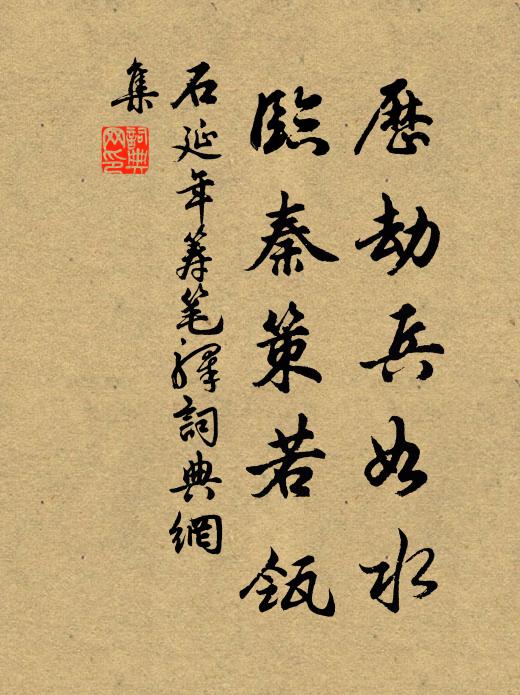 歷劫兵如水
臨秦策若瓴
石延年籌笔驛詞典網
集
詞典
网印